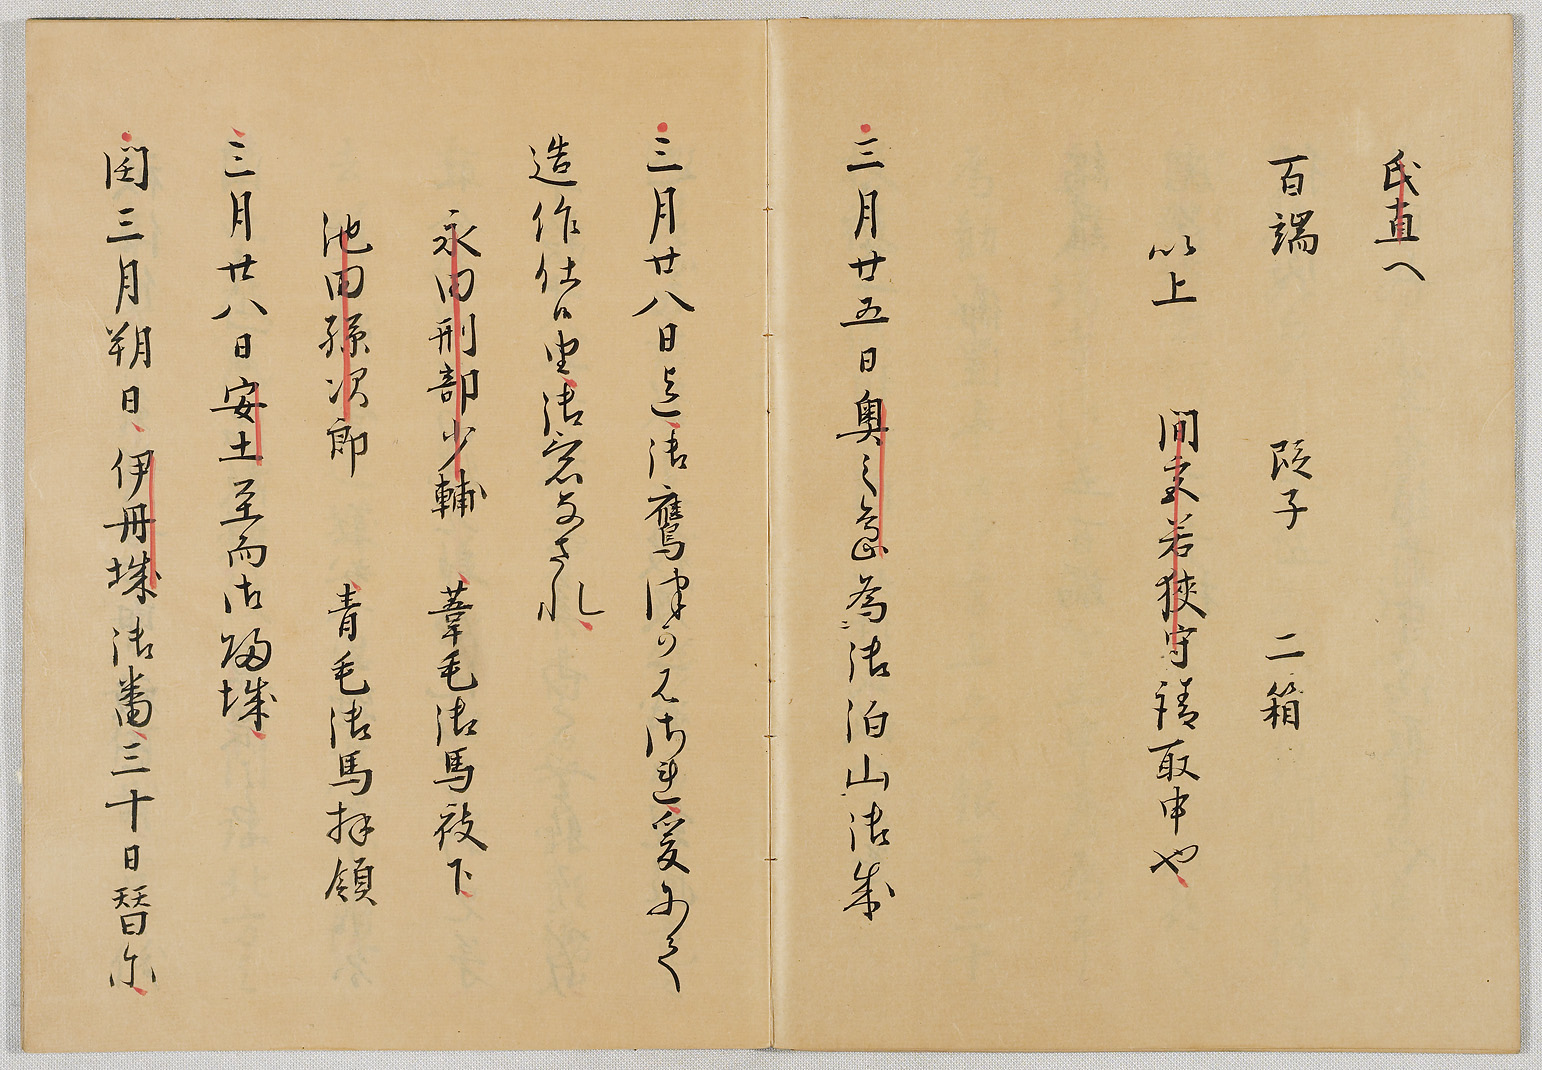 氏直へ
百端　段子　二箱
以上　間宮若狭守請取申也
三月廿五日奥之島為御泊山御成
三月廿八日迄御鷹つかはされ爰にて
造作仕候由御意なされ
永田刑部少輔　葦毛御馬被下
池田孫次郎　青毛御馬拝領
三月廿八日安土至而御帰城
閏三月朔日伊丹城御番三十日替尓